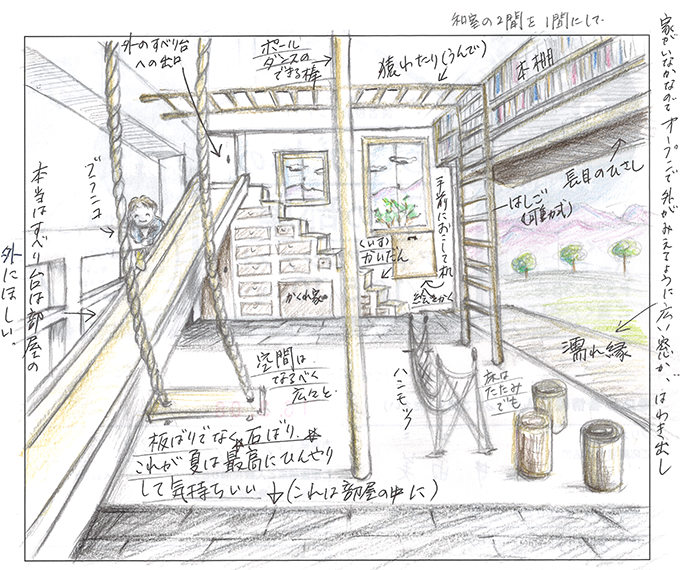 和室の2間を1間にして.
家がいなかなのでオープンで外がみえてように広い窓が、はわき出し
外のすべり台
への出口
ポール
ダンスの
できる棒
猿わたり(うんてい)
本棚
長目のひさし
はしご
(可動式)
手前におこして机
絵をかく
(いす)
かいだん
かくれ家
ブランコ
本当はすべり台は部屋の
外にほしい.
空間は
なるべく
広々と.
ハンモック
床は
たたみ
でも
濡れ縁
板ばりでなく石ばり.
これが夏は最高にひんやり
して気持ちいい ↓(これは部屋の中に)